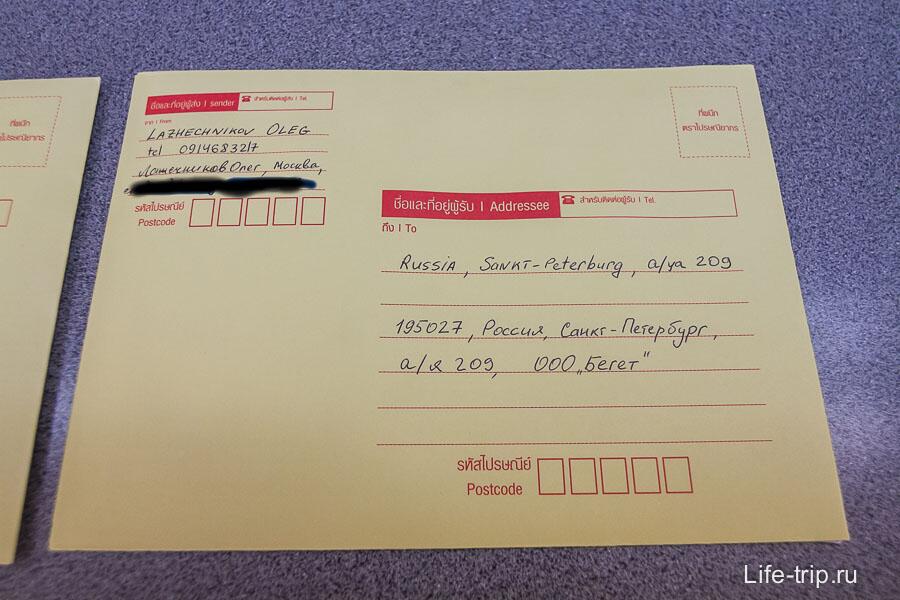 ชื่อและที่อยู่ผู้ส่ง | sender ☎ สำหรับติดต่อผู้ส่ง | Tel.
จาก | From
LAZHECHNIKOV OLEG
tel 0914683217
Лажечников Олег, Москва,
รหัสไปรษณีย์
Postcode
ที่ผนึก
ตราไปรษณียากร
ที่ผนึก
ตราไปรษณียากร
ชื่อและที่อยู่ผู้รับ | Addressee ☎ สำหรับติดต่อผู้รับ | Tel.
ถึง | To
Russia, Sankt-Peterburg, a/ya 209
195027, Россия, Санкт-Петербург,
а/я 209, ООО „Бегет"
รหัสไปรษณีย์
Postcode
Life-trip.ru